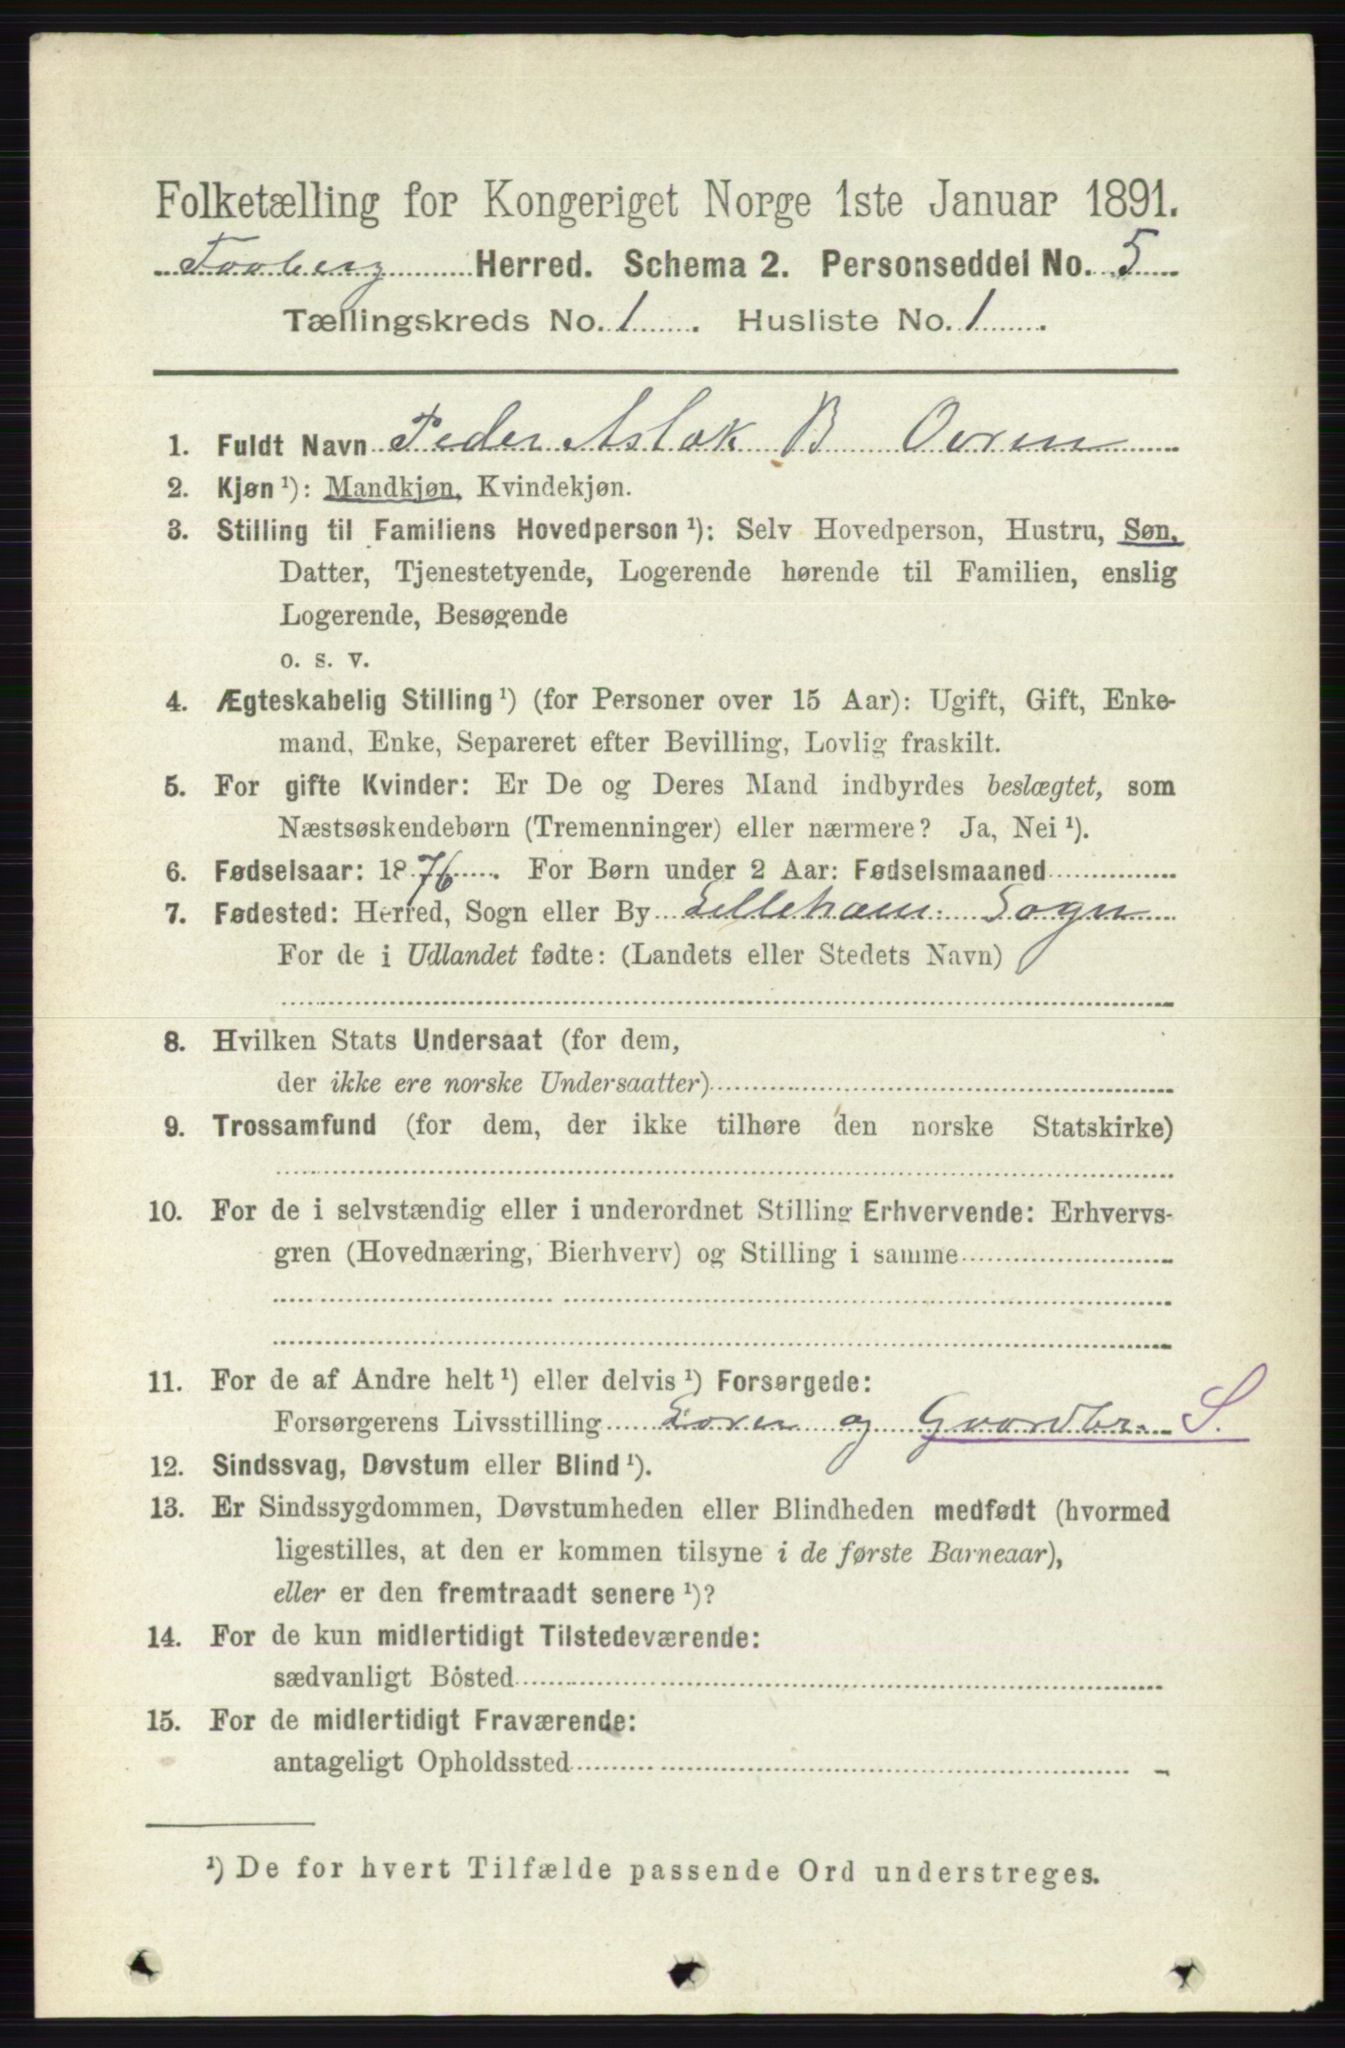 Folketælling for Kongeriget Norge 1ste Januar 1891.
Faaberg Herred. Schema 2. Personseddel No. 5
Tællingskreds No. 1. Husliste No. 1.
1. Fuldt Navn Peder Aslak B Ovren
2. Kjøn ¹): Mandkjøn, Kvindekjøn.
3. Stilling til Familiens Hovedperson ¹): Selv Hovedperson, Hustru, Søn,
Datter, Tjenestetyende, Logerende hørende til Familien, enslig
Logerende, Besøgende
o. s. v.
4. Ægteskabelig Stilling ¹) (for Personer over 15 Aar): Ugift, Gift, Enke-
mand, Enke, Separeret efter Bevilling, Lovlig fraskilt.
5. For gifte Kvinder: Er De og Deres Mand indbyrdes beslægtet, som
Næstsøskendebørn (Tremenninger) eller nærmere? Ja, Nei ¹).
6. Fødselsaar: 1876. For Børn under 2 Aar: Fødselsmaaned
7. Fødested: Herred, Sogn eller By Lilleham: Sogn
For de i Udlandet fødte: (Landets eller Stedets Navn)
8. Hvilken Stats Undersaat (for dem,
der ikke ere norske Undersaatter)
9. Trossamfund (for dem, der ikke tilhøre den norske Statskirke)
10. For de i selvstændig eller i underordnet Stilling Erhvervende: Erhvervs-
gren (Hovednæring, Bierhverv) og Stilling i samme
11. For de af Andre helt ¹) eller delvis ¹) Forsørgede:
Forsørgerens Livsstilling og Gaardbr. S.
12. Sindssvag, Døvstum eller Blind ¹).
13. Er Sindssygdommen, Døvstumheden eller Blindheden medfødt (hvormed
ligestilles, at den er kommen tilsyne i de første Barneaar),
eller er den fremtraadt senere ¹)?
14. For de kun midlertidigt Tilstedeværende:
sædvanligt Bosted
15. For de midlertidigt Fraværende:
antageligt Opholdssted
¹) De for hvert Tilfælde passende Ord understreges.